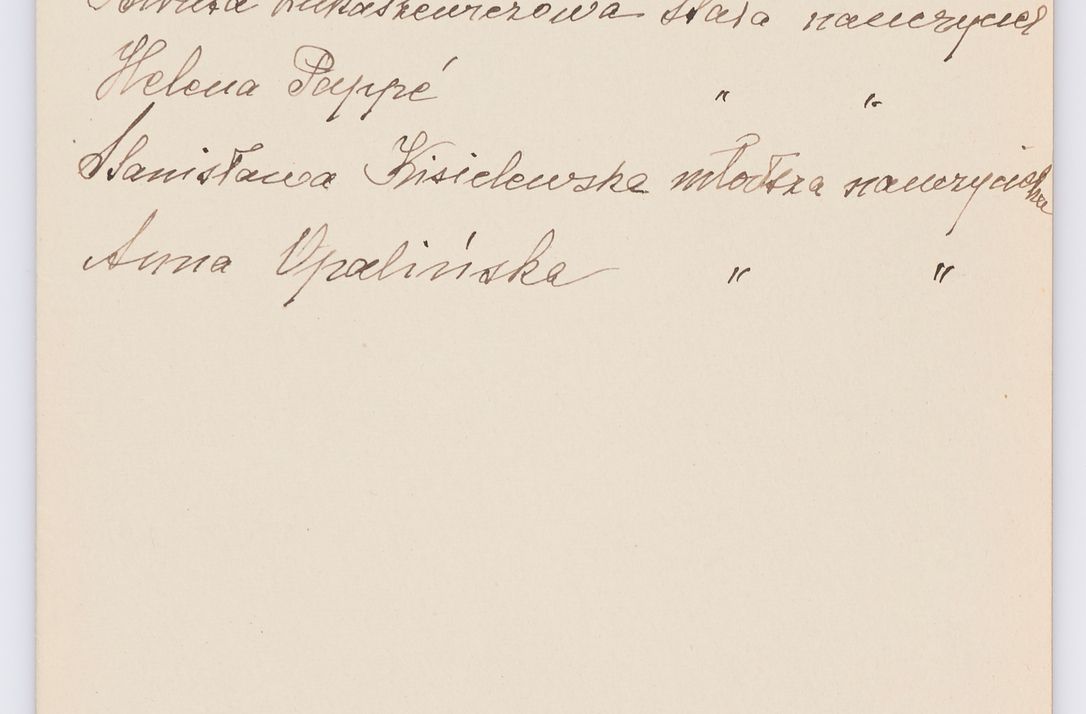 Łukaszewiczowa stała nauczyciel
Helena Pappé " "
Stanisława Kisielewska młodsza nauczycielka
Anna Opalińska " "